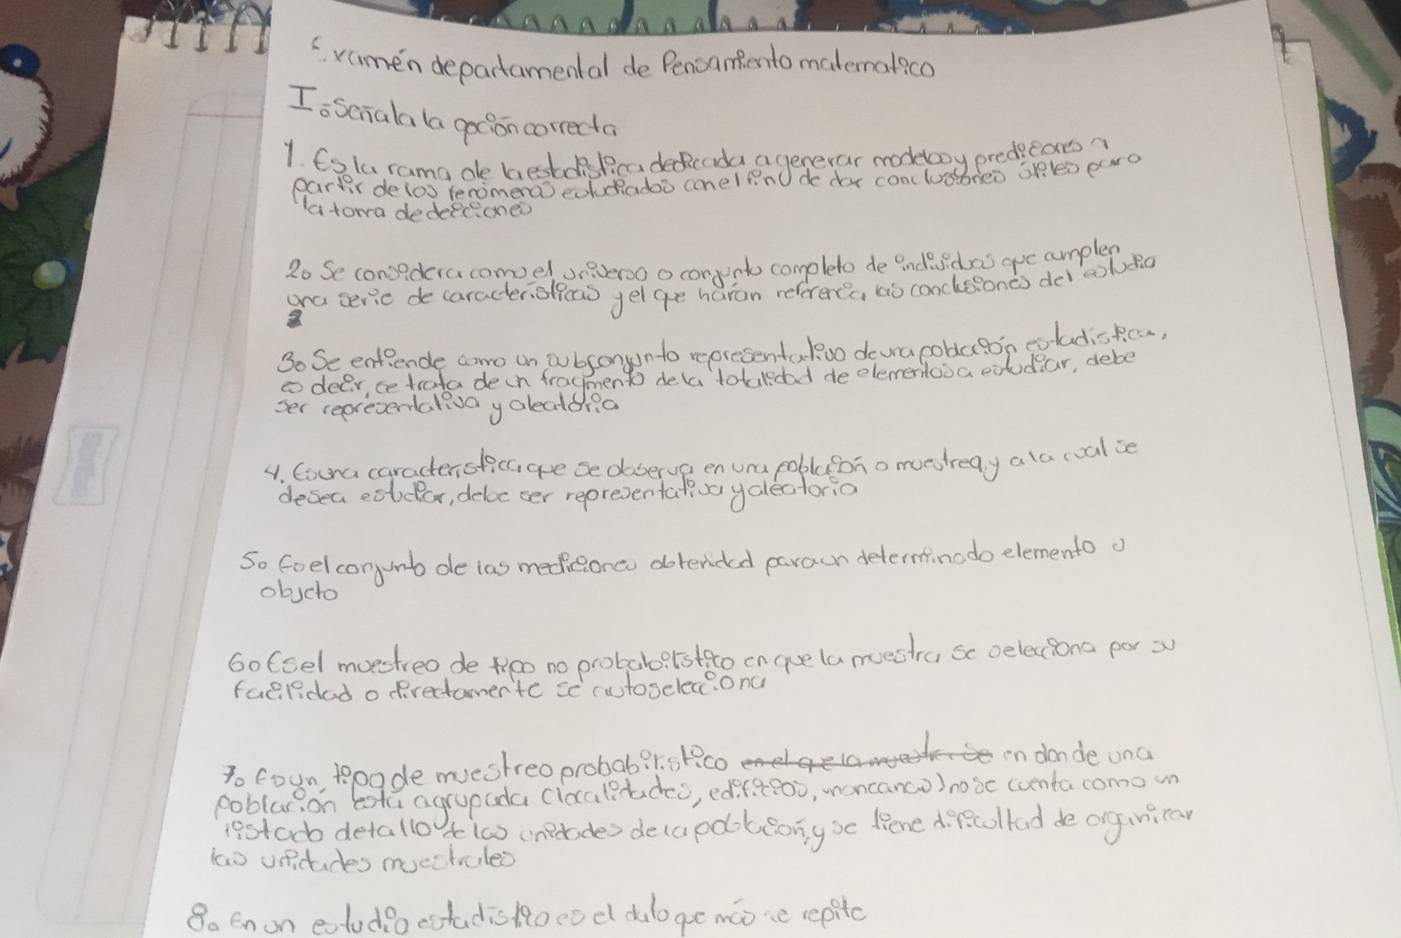 Examén departamental de Pensamiento matematico
I. Señala la opción correcta
1. Es la rama de la estadistica dedicada a generar modelos y predicciones a
partir de los fenomenos estudiados con el fin de dar conclusiones utiles para
la toma de decciones
2. Se considera como el universo o conjunto completo de individuos que cumplen
una serie de caracteristicas y el que haran referencia las conclusiones del estudio
3. Se entiende como un subconjunto representativo de una población estadistica,
es decir, se trata de un fragmento de la totalidad de elementos a estudiar, debe
ser representativa y aleatória
4. Es una caracteristica que se observa en una población o muestra, y a la cual se
desea estudiar, debe ser representativa y aleatoria
5. Es el conjunto de las mediciones obtenidad para un determinado elemento u
objeto
6. Es el muestreo de tipo no probabilistico en que la muestra se selecciona por su
facilidad o directamente se autoselecciona
7. Es un tipo de muestreo probabilistico en el que la muestra se en donde una
población está agrupada (localidades, edificios, manzanas) no se cuenta como un
listado detallo de las unidades de la población, y se tiene dificultad de organizar
las unidades muestrales
8. En un estudio estadistico es el dato que más se repite